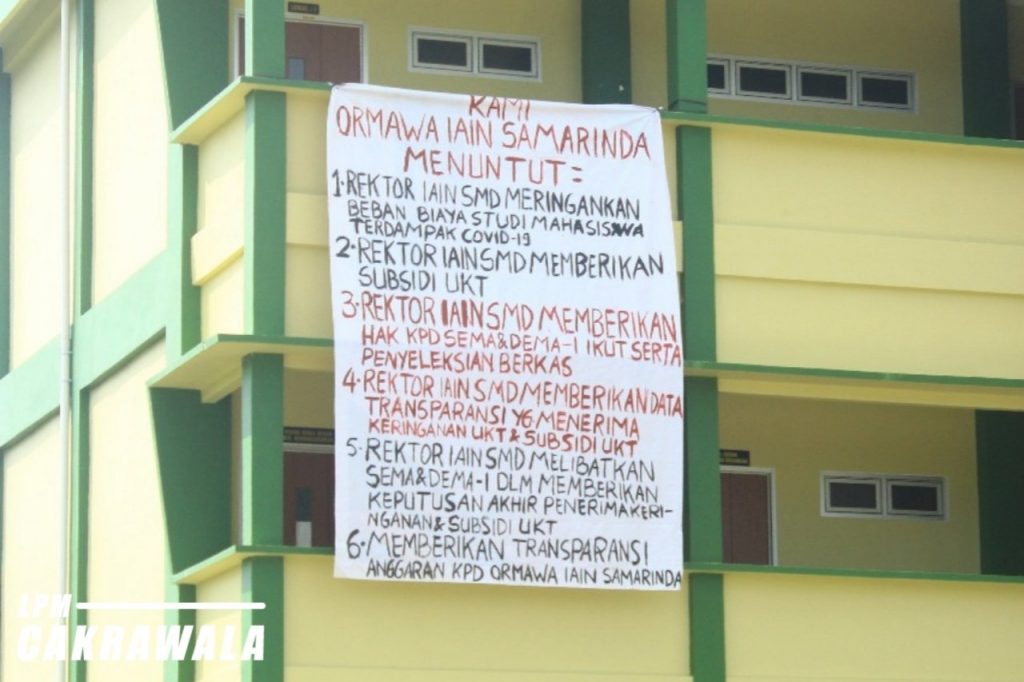 KAMI
ORMAWA IAIN SAMARINDA
MENUNTUT =
1. REKTOR IAIN SMD MERINGANKAN
BEBAN BIAYA STUDI MAHASISWA
TERDAMPAK COVID-19
2. REKTOR IAIN SMD MEMBERIKAN
SUBSIDI UKT
3. REKTOR IAIN SMD MEMBERIKAN
HAK KPD SEMA & DEMA-I IKUT SERTA
PENYELEKSIAN BERKAS
4. REKTOR IAIN SMD MEMBERIKAN DATA
TRANSPARANSI YG MENERIMA
KERINGANAN UKT & SUBSIDI UKT
5. REKTOR IAIN SMD MELIBATKAN
SEMA & DEMA-I DLM MEMBERIKAN
KEPUTUSAN AKHIR PENERIMA KERI-
NGANAN & SUBSIDI UKT
6. MEMBERIKAN TRANSPARANSI
ANGGARAN KPD ORMAWA IAIN SAMARINDA
LPM
CAKRAWALA